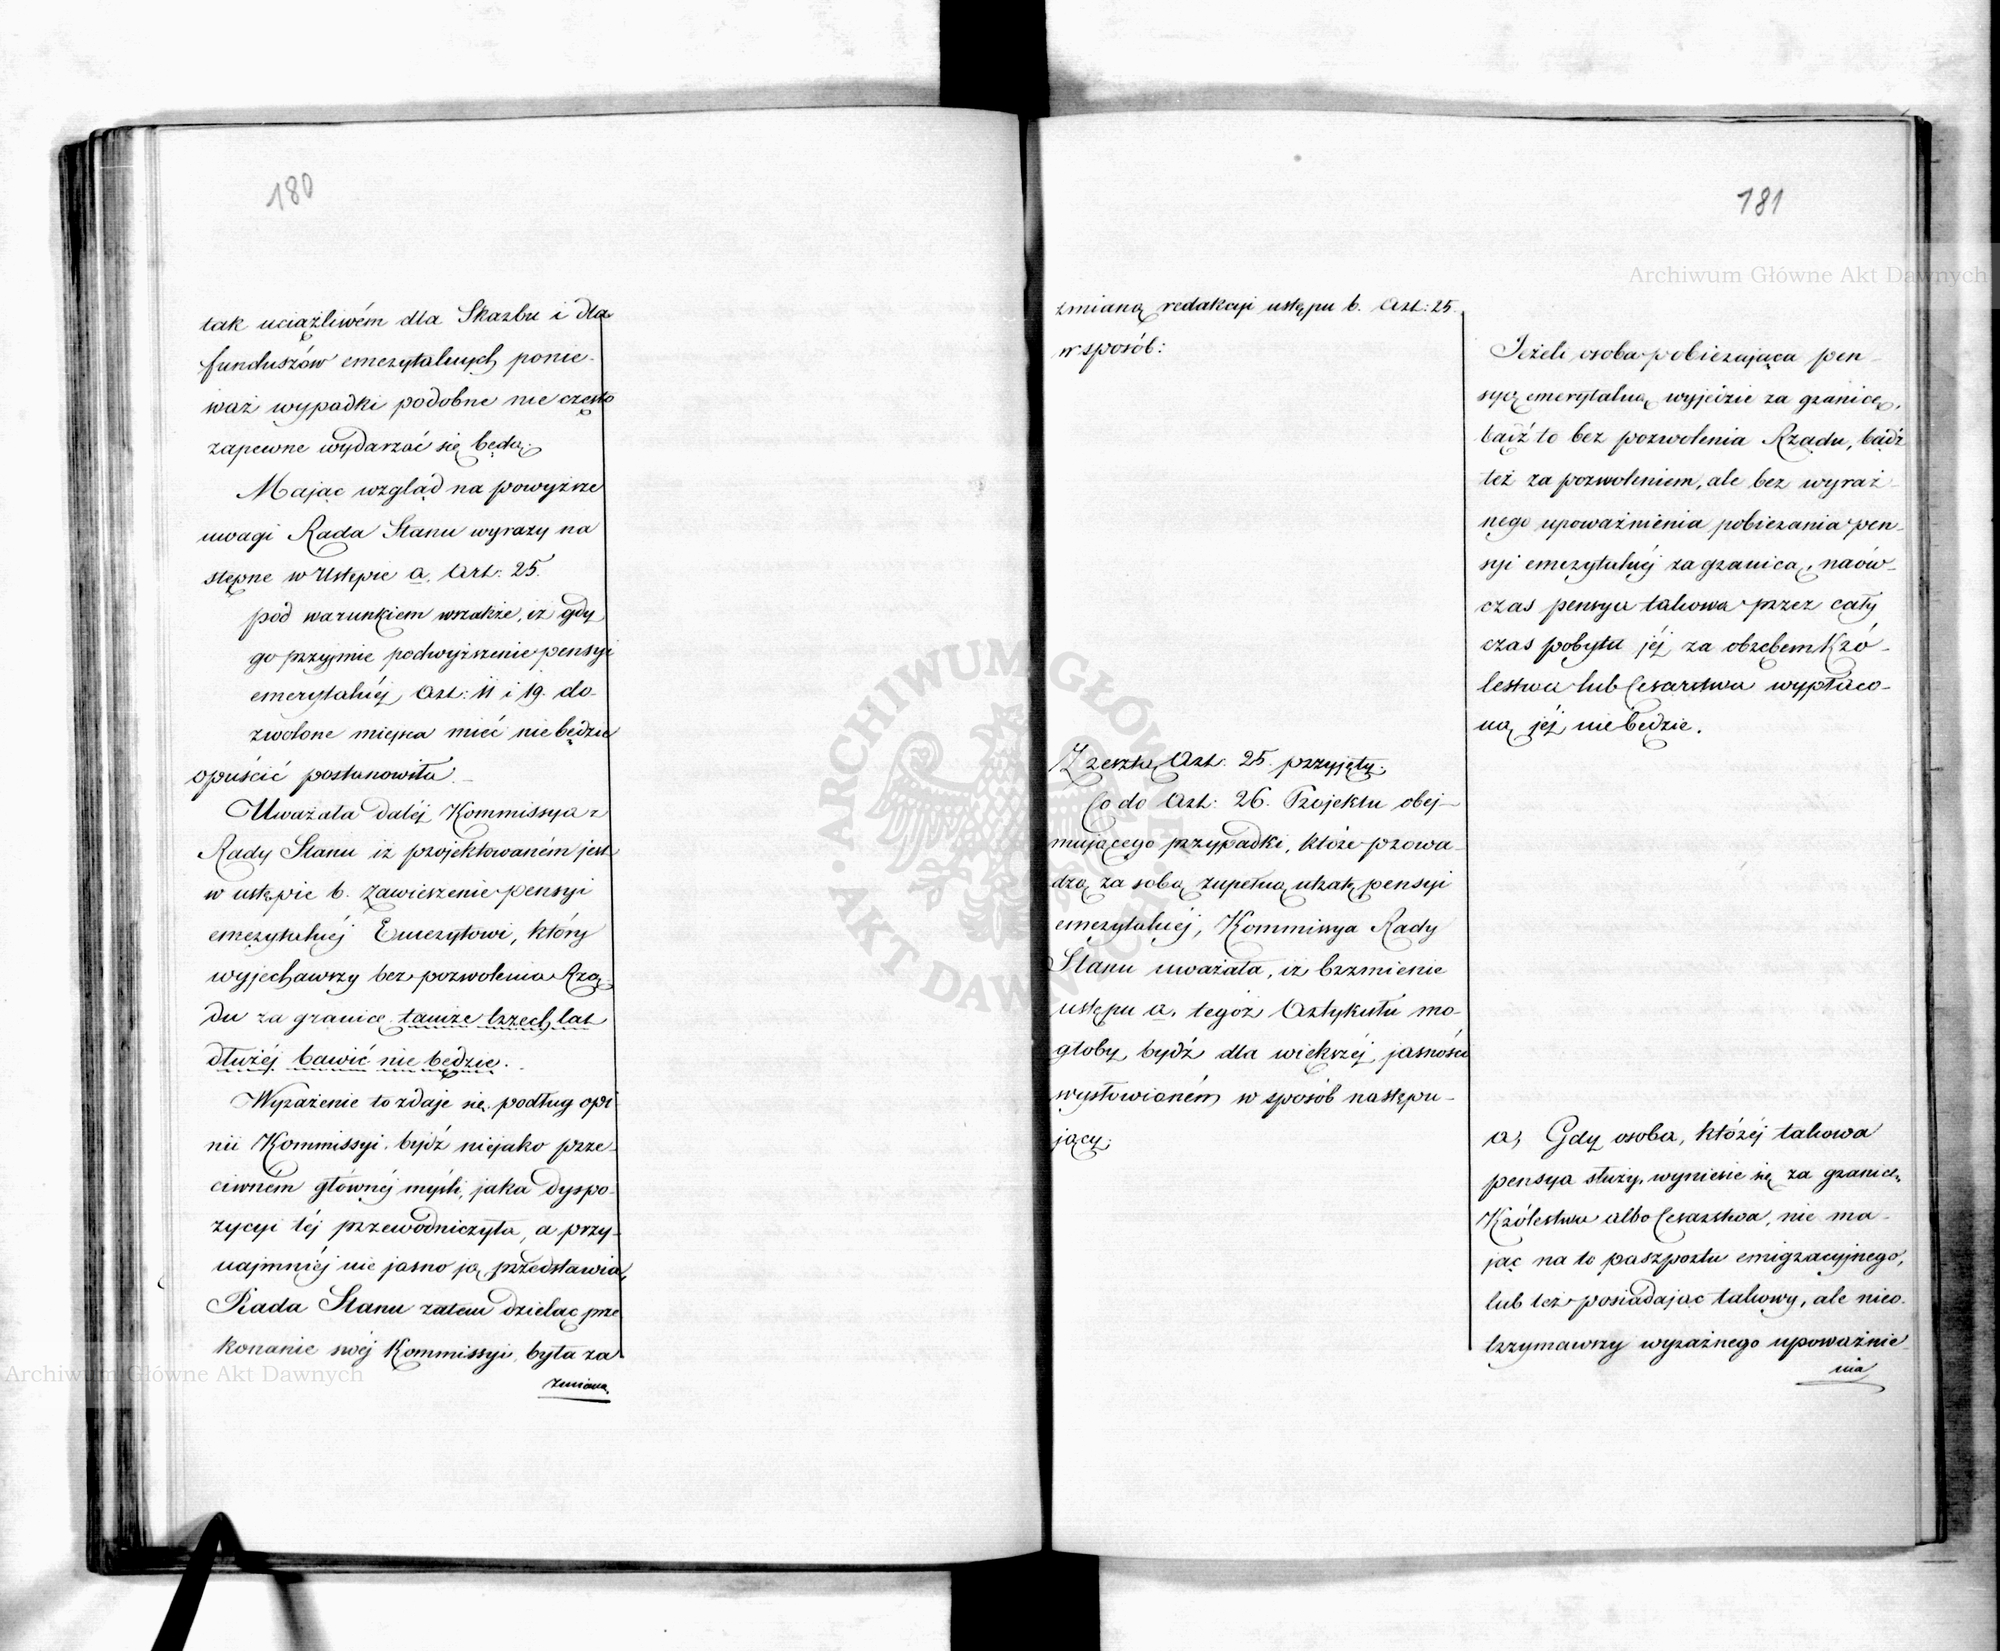 180
tak uciążliwém dla Skarbu i dla
funduszów emerytalnych ponie-
waż wypadki podobne nie często
zapewne wydarzać się będą.
Mając wzgląd na powyższe
uwagi Rada Stanu wyrazy na
stępne w Ustępie a. Art: 25.
pod warunkiem wszakże, iż gdy
go przyjmie podwyższenie pensyi
emerytalnéj Art: 11 i 19. do-
zwolone miejsca mieć nie będzie
opuścić postanowiła.
Uważała daléj Kommissya
Rady Stanu iż projektowaném jest
w ustępie b. zawieszenie pensyi
emerytalnéj Emerytowi, który
wyjechawszy bez pozwolenia Rzą-
du za granicę tamże trzech lat
dłużéj bawić nie będzie.
Wyrażenie to zdaje się podług opi
nii Kommissyi, bydź niejako prze-
ciwném głównéj myśli, jaka dyspo-
zycyi téj przewodniczyła, a przy-
najmniéj nie jasno ją przedstawia,
Rada Stanu zatem dzieląc prze
konanie swéj Kommissyi, była za
zmianą
181
zmianą redakcyi ustępu b. Art: 25.
w sposób:
Jeżeli osoba pobierająca pen-
syę emerytalną wyjedzie za granicę,
bądź to bez pozwolenia Rządu, bądź
też za pozwoleniem, ale bez wyraź-
nego upoważnienia pobierania pen-
syi emerytalnéj za granicą, naów-
czas pensya takowa przez cały
czas pobytu jéj za obrębem Kró-
lestwa lub Cesarstwa wypłaco-
ną jéj nie będzie.
Z resztą Art: 25. przyjęty.
Co do Art: 26. Projektu obej-
mującego przypadki, które prowa-
dzą za sobą zupełną utratę pensyi
emerytalnéj, Kommissya Rady
Stanu uważała, iż brzmienie
ustępu a. tegoż Artykułu mo-
głoby bydź dla większéj jasności
wysłowioném w sposób następu-
jący:
a, Gdy osoba, któréj takowa
pensya służy, wyniesie się za granicę
Królestwa albo Cesarstwa, nie ma-
jąc na to paszportu emigracyjnego,
lub też posiadając takowy, ale nieo-
trzymawszy wyraźnego upoważnie-
nia
Archiwum Główne Akt Dawnych
Archiwum Główne Akt Dawnych
ARCHIWUM GŁÓWNE · AKT DAWNYCH ·